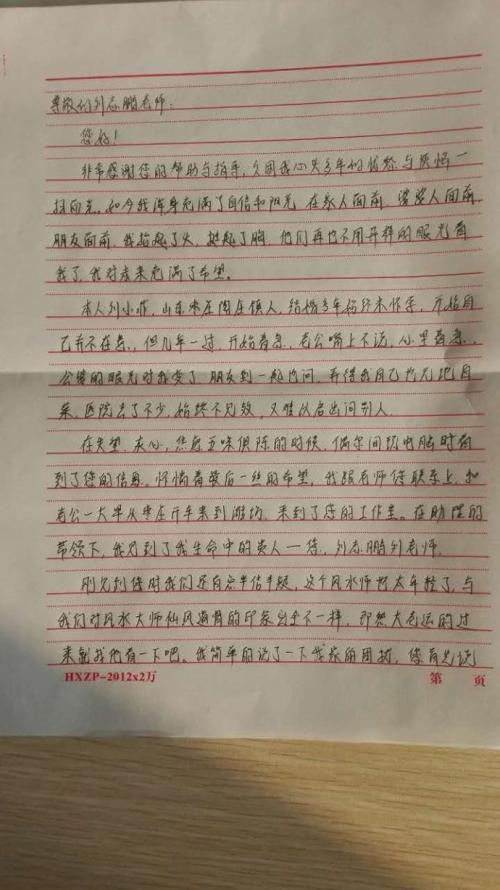 尊敬的刘志鹏老师:
您好!
非常感谢您的帮助与指导,久困我心头多年的忧愁与烦恼一
扫而光。如今我浑身充满了自信和阳光,在家人面前,婆婆人面前,
朋友面前,我抬起了头,挺起了胸,他们再也不用异样的眼光看
我了,我对未来充满了希望。
本人刘小菲,山东枣庄陶庄镇人,结婚多年始终未怀孕,开始自
己并不在意,但几年一过,开始着急,老公嘴上不说,心里着急,
公婆的眼光对我变了,朋友到一起也问,弄得我自己也无地自
容。医院去了不少,始终不见效,又难以启齿问别人。
在失望、灰心,您五味俱陈的时候,偶尔间玩电脑时看
到了您的信息。怀惴着最后一丝的希望,我跟老师您联系上,和
老公一大早从枣庄开车来到潍坊,来到了您的工作室。在助理的
带领下,我见到了我生命中的贵人——您,刘志鹏刘老师。
刚见到您时我们还有点半信半疑,这个风水师也太年轻了,与
我们对风水大师仙风道骨的印象完全不一样,即然大老远的过
来就找他看一下吧。我简单的说了一下我家的困扰,您看见说
HXZP-2012x2万
第 页